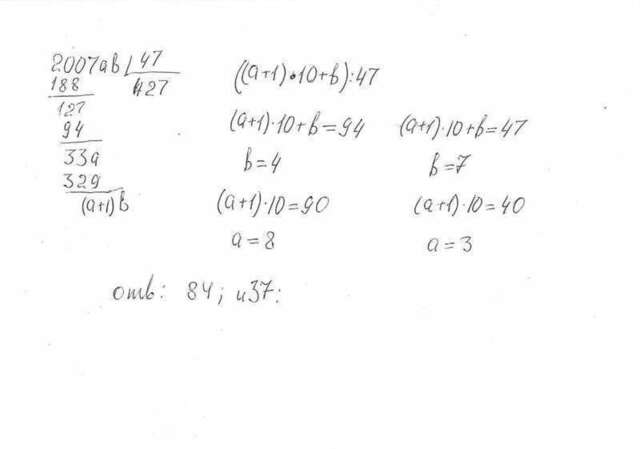 2007ab 47
188 427
127
94
33a
329
(a+1)b
((a+1)·10+b):47
(a+1)·10+b=94
b=4
(a+1)·10=90
a=8
(a+1)·10+b=47
b=7
(a+1)·10=40
a=3
отв: 84; и37: